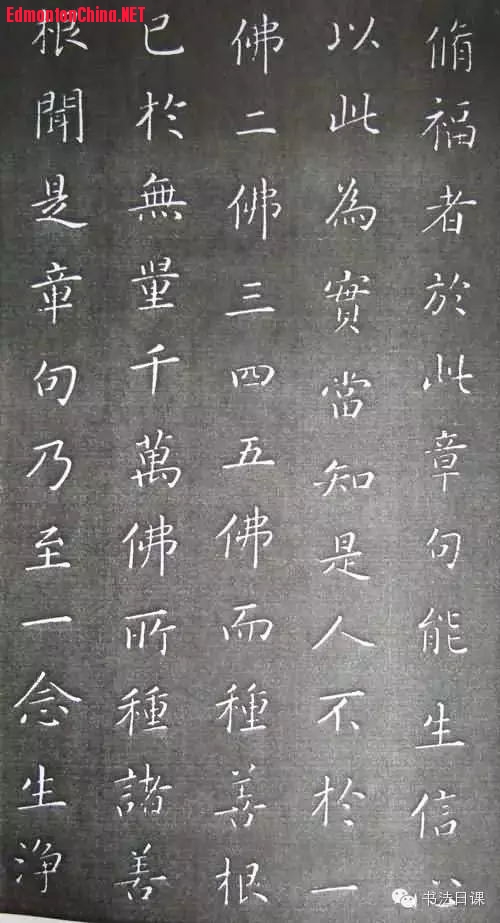 EdmontonChina.NET
脩福者於此章句能生信心
以此為實當知是人不於一
佛二佛三四五佛而種善根
已於無量千萬佛所種諸善
根聞是章句乃至一念生淨
书法日课